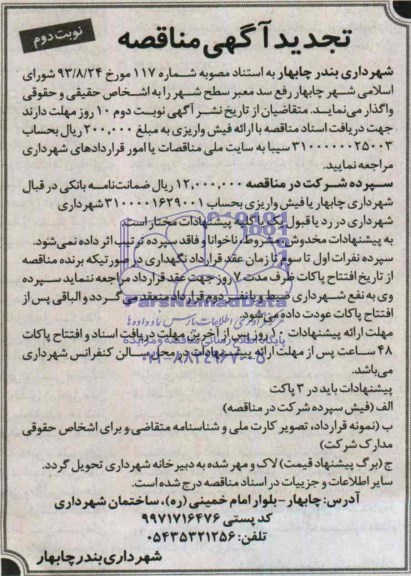 نوبت دوم
تجدید آگهی مناقصه
شهرداری بندر چابهار به استناد مصوبه شماره ۱۱۷ مورخ ۹۳/۸/۲۴ شورای
اسلامی شهر چابهار رفع سد معبر سطح شهر را به اشخاص حقیقی و حقوقی
واگذار می‌نماید. متقاضیان از تاریخ نشر آگهی نوبت دوم ۱۰ روز مهلت دارند
جهت دریافت اسناد مناقصه با ارائه فیش واریزی به مبلغ ۲۰۰,۰۰۰ ریال بحساب
۳۱۰۰۰۰۰۰۲۵۰۰۳ سیبا به سایت ملی مناقصات یا امور قراردادهای شهرداری
مراجعه نمایید.
سپرده شرکت در مناقصه ۱۲,۰۰۰,۰۰۰ ریال ضمانت‌نامه بانکی در قبال
شهرداری چابهار یا فیش واریزی بحساب ۳۱۰۰۰۰۱۶۲۹۰۰۱ شهرداری
شهرداری در رد یا قبول یک یا کلیه پیشنهادات مختار است.
به پیشنهادات مخدوش، مشروط، ناخوانا و فاقد سپرده ترتیب اثر داده نمی‌شود.
سپرده نفرات اول تا سوم تا زمان عقد قرارداد نگهداری در صورتیکه برنده مناقصه
از تاریخ افتتاح پاکات ظرف مدت ۷ روز جهت عقد قرارداد مراجعه ننماید سپرده
وی به نفع شهرداری ضبط و با نفر دوم قرارداد منعقد می‌گردد و الباقی پس از
افتتاح پاکات عودت داده می‌شود.
مهلت ارائه پیشنهادات ۱۰ روز پس از آخرین مهلت دریافت اسناد و افتتاح پاکات
۴۸ ساعت پس از مهلت ارائه پیشنهادات در محل سالن کنفرانس شهرداری
می‌باشد.
پیشنهادات باید در ۳ پاکت
الف (فیش سپرده شرکت در مناقصه)
ب (نمونه قرارداد، تصویر کارت ملی و شناسنامه متقاضی و برای اشخاص حقوقی
مدارک شرکت)
ج (برگ پیشنهاد قیمت) لاک و مهر شده به دبیرخانه شهرداری تحویل گردد.
سایر اطلاعات و جزییات در اسناد مناقصه درج شده است.
آدرس: چابهار - بلوار امام خمینی (ره)، ساختمان شهرداری
کد پستی ۹۹۷۱۷۱۶۴۷۶
تلفن: ۰۵۴۳۵۳۲۱۲۵۶
شهرداری بندر چابهار
ParsNamadData
۰۲۱-۸۸۳۴۹۶۷۰-۵